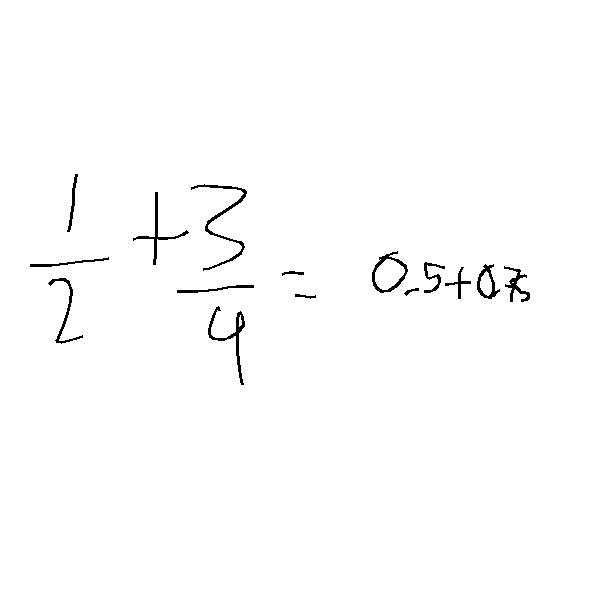 1/2 + 3/4 = 0.5+0.75